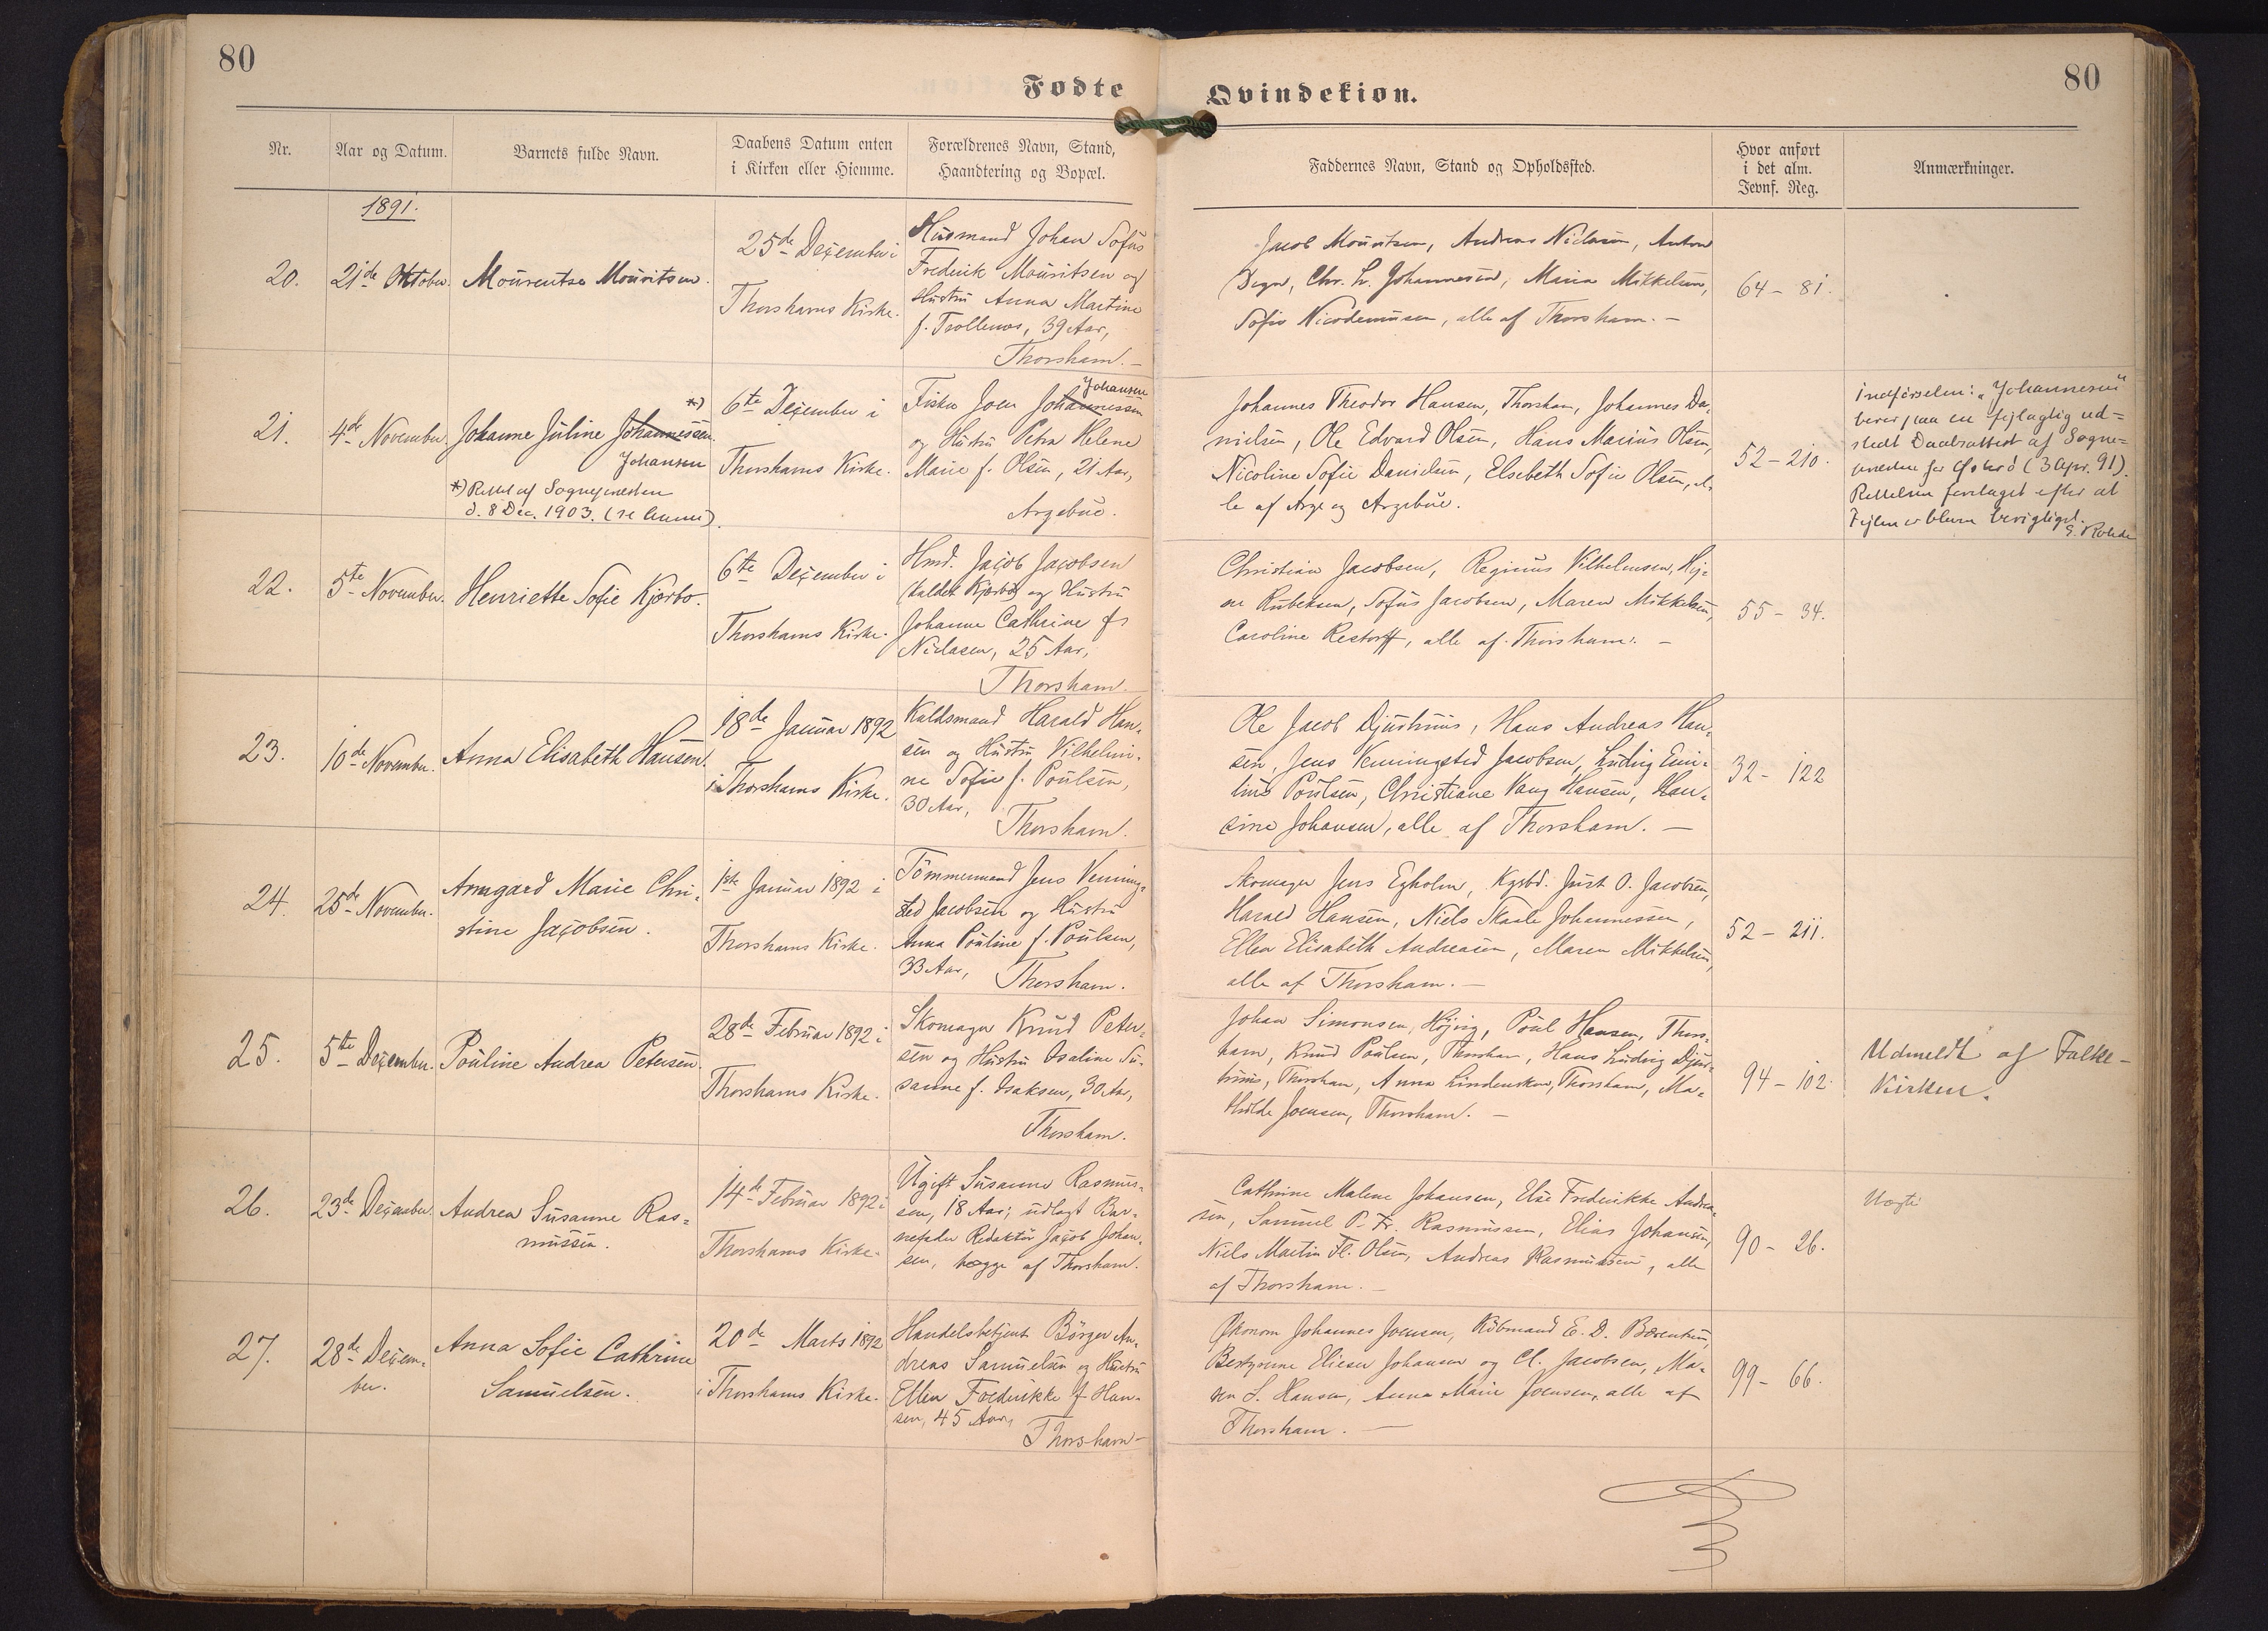 80
80
Fødte
Qvindekiøn.
Nr.
Aar og Datum.
Barnets fulde Navn.
Daabens Datum enten
i Kirken eller Hiemme.
Forældrenes Navn, Stand,
Haandtering og Bopæl.
Faddernes Navn, Stand og Opholdssted.
Hvor anført
i det alm.
Jevnf. Reg.
Anmærkninger.
1891.
20.
21de Oktober.
Mourentse Mouritsen.
25de December i
Thorshavns Kirke.
Husmand Johan Sofus
Frederik Mouritsen og
Hustru Anna Martine
f. Trollenæs, 39 Aar,
Thorshavn. —
Jacob Mouritsen, Andreas Niclasen, Anton
Degn, Chr. L. Johannesen, Maria Mikkelsen,
Sofie Nicodemusen, alle af Thorshavn. —
64 – 81.
21.
4de November.
Johanne Juline Johannessen. *)
Johansen
*) Rettet af Sognepræsten
d. 8 Dec. 1903. (se Anm.).
6te December i
Thorshavns Kirke.
Johansen
Fisker Joen Johannessen
og Hustru Petra Helene
Marie f. Olsen, 21 Aar,
Argebøe.
Johannes Theodor Hansen, Thorshavn, Johannes Da-
nielsen, Ole Edvard Olsen, Hans Marius Olsen,
Nicoline Sofie Danielsen, Elsebeth Sofie Olsen, al-
le af Arge og Argebøe.
52 – 210.
Indførselen: "Johannesen"
beror paa en fejlagtig ud-
stedt Daabsattest af Sogne-
præsten for Østerø (3 Apr. 91).
Rettelsen foretaget efter at
Fejlen er bleven berigtiget.
22.
5te November.
Henriette Sofie Kjærbo.
6te December i
Thorshavns Kirke.
Hmd. Jacob Jacobsen
(kaldet Kjærbo) og Hustru
Johanne Cathrine f.
Niclasen, 25 Aar,
Thorshavn.
Christian Jacobsen, Reginus Vilhelmsen, Hej-
ne Rubeksen, Sofus Jacobsen, Maren Mikkelsen,
Caroline Restorff, alle af Thorshavn. —
55 – 34.
23.
10de November.
Anna Elisabeth Hansen.
18de Januar 1892
i Thorshavns Kirke.
Kaldsmand Harald Han-
sen og Hustru Vilhelmi-
ne Sofie f. Poulsen,
30 Aar,
Thorshavn.
Ole Jacob Djurhuus, Hans Andreas Han-
sen, Jens Venningsted Jacobsen, Ludvig Emi-
lius Poulsen, Christiane Vang Hansen, Han-
sine Johansen, alle af Thorshavn. —
32 – 122
24.
25de November.
Armgard Marie Chri-
stine Jacobsen.
1ste Januar 1892 i
Thorshavns Kirke.
Tømmermand Jens Venning-
sted Jacobsen og Hustru
Anna Pouline f. Poulsen,
33 Aar,
Thorshavn.
Skomager Jens Egholm, Kgsbd. Just O. Jacobsen,
Harald Hansen, Niels Skaale Johannessen,
Ellen Elisabeth Andreasen, Maren Mikkelsen,
alle af Thorshavn. —
52 – 211.
25.
5te December.
Pouline Andrea Petersen.
28de Februar 1892 i
Thorshavns Kirke.
Skomager Knud Peter-
sen og Hustru Isaline Su-
sanne f. Isaksen, 30 Aar,
Thorshavn.
Johan Simonsen, Højvig, Poul Hansen, Thors-
havn, Knud Poulsen, Thorshavn, Hans Ludvig Djur-
huus, Thorshavn, Anna Lindenskov, Thorshavn, Ma-
thilde Joensen, Thorshavn. —
94 – 102.
Udmeldt af Folke-
kirken.
26.
23de December.
Andrea Susanne Ras-
mussen.
14de Februar 1892 i
Thorshavns Kirke.
Ugift Susanne Rasmus-
sen, 18 Aar; udlagt Bar-
nefader Redaktør Jacob Johan-
sen, begge af Thorshavn.
Cathrine Malene Johansen, Else Frederikke Andrea-
sen, Samuel P. Fr. Rasmussen, Elias Johansen,
Niels Martin Fl. Olsen, Andreas Rasmussen, alle
af Thorshavn. —
90 – 26.
Uægte
27.
28de Decem-
ber.
Anna Sofie Cathrine
Samuelsen.
20de Marts 1892
i Thorshavns Kirke.
Handelsbetjent Børger An-
dreas Samuelsen og Hustru
Ellen Frederikke f. Han-
sen, 45 Aar,
Thorshavn —
Økonom Johannes Joensen, Købmand E. D. Bærentsen,
Bestyrerne Elieser Johansen og Cl. Jacobsen, Ma-
ren S. Hansen, Anna Marie Joensen, alle af
Thorshavn. —
99 – 66.